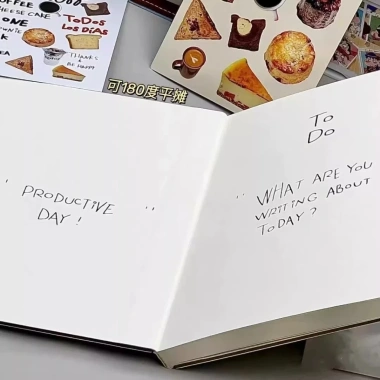 COFFEE
CHEESE CAKE
ONE
TODOS
LOS DÍAS
THANKS
& BE HAPPY
可180度平摊
" PRODUCTIVE
DAY! "
To
Do
" WHAT ARE YOU
WRITING ABOUT
TODAY?